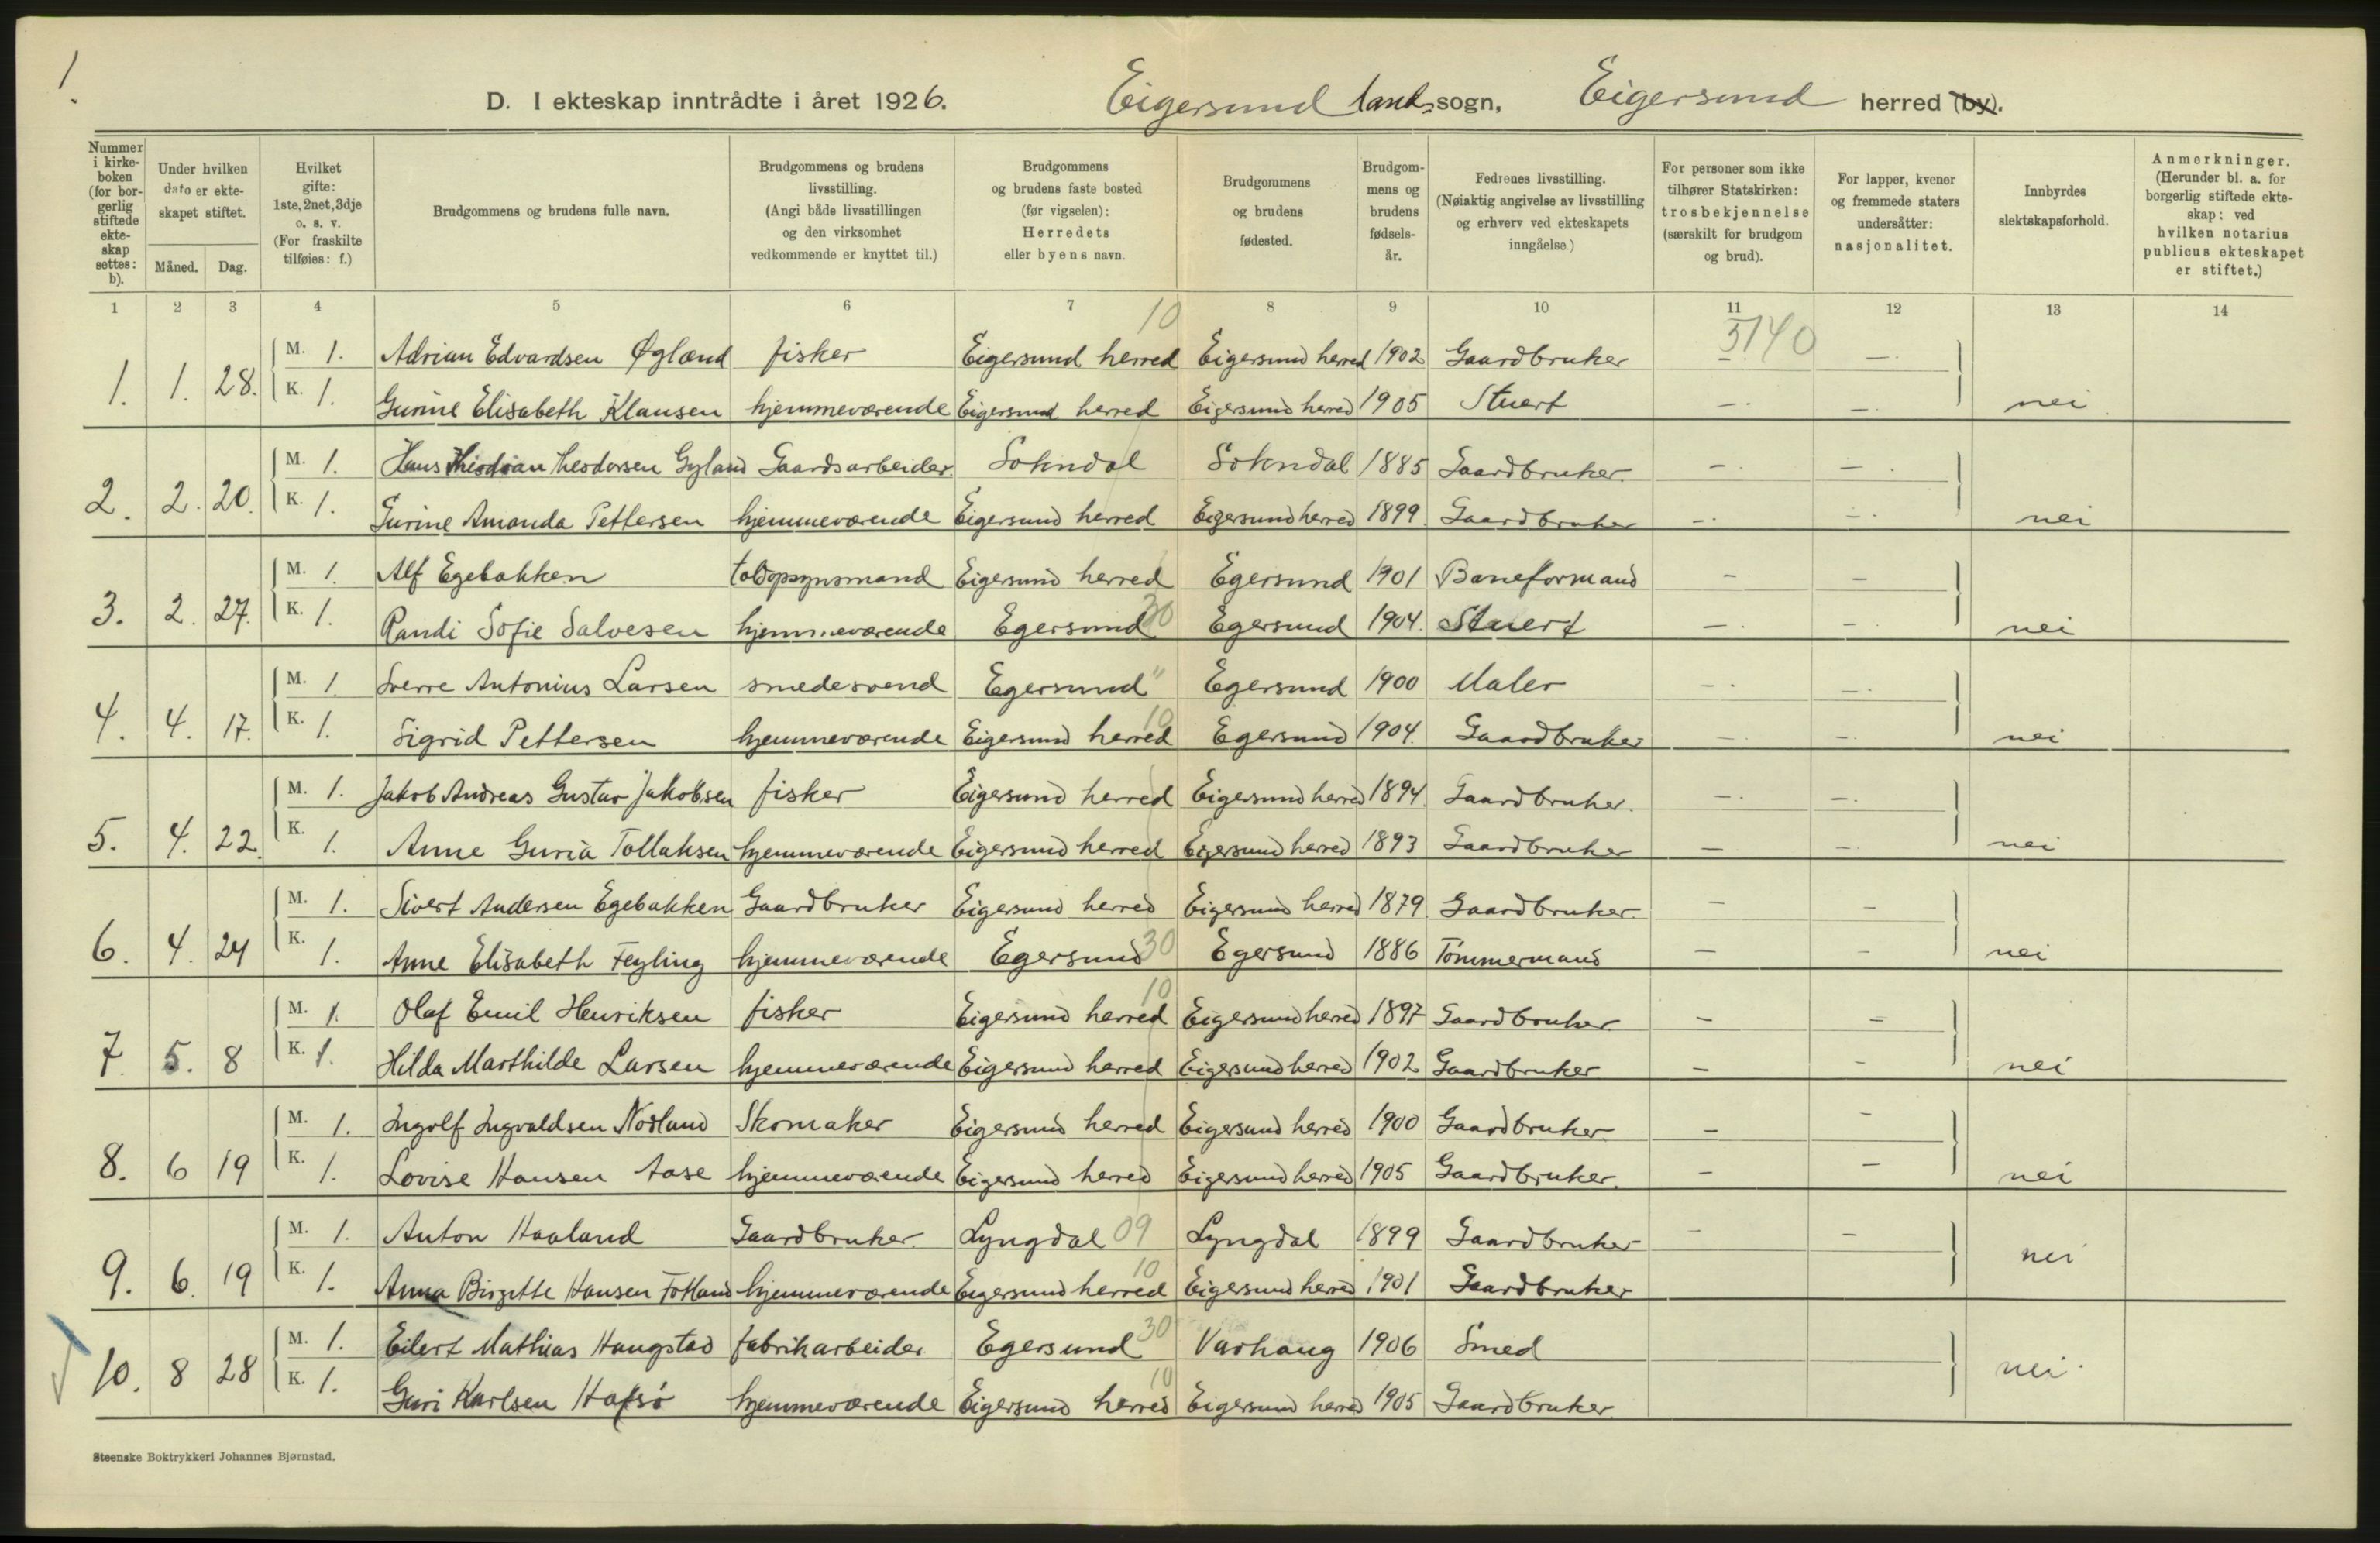 1.
D. I ekteskap inntrådte i året 1926. Eigersund land sogn, Eigersund herred (by).
Nummer i kirkeboken (for borgerlig stiftede ekteskap settes: b).
Under hvilken dato er ekteskapet stiftet.
Måned. Dag.
Hvilket gifte: 1ste, 2net, 3dje o. s. v. (For fraskilte tilføies: f.)
Brudgommens og brudens fulle navn.
Brudgommens og brudens livsstilling. (Angi både livsstillingen og den virksomhet vedkommende er knyttet til.)
Brudgommens og brudens faste bosted (før vigselen): Herredets eller byens navn.
Brudgommens og brudens fødested.
Brudgommens og brudens fødselsår.
Fedrenes livsstilling. (Nøiaktig angivelse av livsstilling og erhverv ved ekteskapets inngåelse.)
For personer som ikke tilhører Statskirken: trosbekjennelse (særskilt for brudgom og brud).
For lapper, kvener og fremmede staters undersåtter: nasjonalitet.
Innbyrdes slektskapsforhold.
Anmerkninger. (Herunder bl. a. for borgerlig stiftede ekteskap: ved hvilken notarius publicus ekteskapet er stiftet.)
1 2 3 4 5 6 7 8 9 10 11 12 13 14
10 5140
1. 1. 28. M. 1. Adrian Edvardsen Øgland fisker Eigersund herred Eigersund herred 1902 Gaardbruker - -.
K. 1. Gurine Elisabeth Klausen hjemmeværende Eigersund herred Eigersund herred 1905 Stuert -. -. nei.
2. 2. 20. M. 1. Hans Theodorsen Gyland Gaardsarbeider Sokndal Sokndal 1885 Gaardbruker. -. -.
K. 1. Gurine Amanda Pettersen hjemmeværende Eigersund herred Eigersund herred 1899 Gaardbruker -. -. nei
3. 2. 27. M. 1. Alf Egebakken toldopsynsmand Eigersund herred Egersund 1901 Baneformand - -
K. 1. Randi Sofie Salvesen hjemmeværende Egersund 30 Egersund 1904. Stuert -. -. nei
4. 4. 17. M. 1. Sverre Antonius Larsen smedesvend Egersund " Egersund 1900 Maler -. -.
K. 1. Sigrid Pettersen hjemmeværende Eigersund herred 10 Egersund 1904. Gaardbruker -. -. nei
5. 4. 22. M. 1. Jakob Andreas Gustav Jakobsen fisker Eigersund herred Eigersund herred 1894. Gaardbruker. -. -.
K. 1. Anne Guria Tollaksen hjemmeværende Eigersund herred Eigersund herred 1893 Gaardbruker - -. nei
6. 4. 24 M. 1. Sivert Andersen Egebakken Gaardbruker Eigersund herred Eigersund herred 1879. Gaardbruker. - -
K. 1. Anne Elisabeth Feyling hjemmeværende Egersund 30 Egersund 1886 Tømmermand - - nei
7. 5. 8 M. 1. Olaf Emil Henriksen fisker Eigersund herred 10 Eigersund herred 1897 Gaardbruker - -
K. 1. Hilda Marthilde Larsen hjemmeværende Eigersund herred Eigersund herred 1902 Gaardbruker - - nei
8. 6 19 M. 1. Ingolf Ingvaldsen Nodland Skomaker Eigersund herred Eigersund herred 1900 Gaardbruker - -
K. 1. Lovise Hansen Aase hjemmeværende Eigersund herred Eigersund herred 1905 Gaardbruker. - - nei
9. 6. 19 M. 1. Anton Haaland Gaardbruker. Lyngdal 09 Lyngdal 1899 Gaardbruker - - nei
K. 1. Anna Birgitte Hansen Fotland hjemmeværende Eigersund herred 10 Eigersund herred 1901 Gaardbruker
10. 8 28 M. 1. Eilert Mathias Haugstad fabrikarbeider Egersund 30 Varhaug 1906 Smed nei.
K. 1. Guri Karlsen Hafsø hjemmeværende Eigersund herred 10 Eigersund herred 1905 Gaardbruker.
Steenske Boktrykkeri Johannes Bjørnstad.